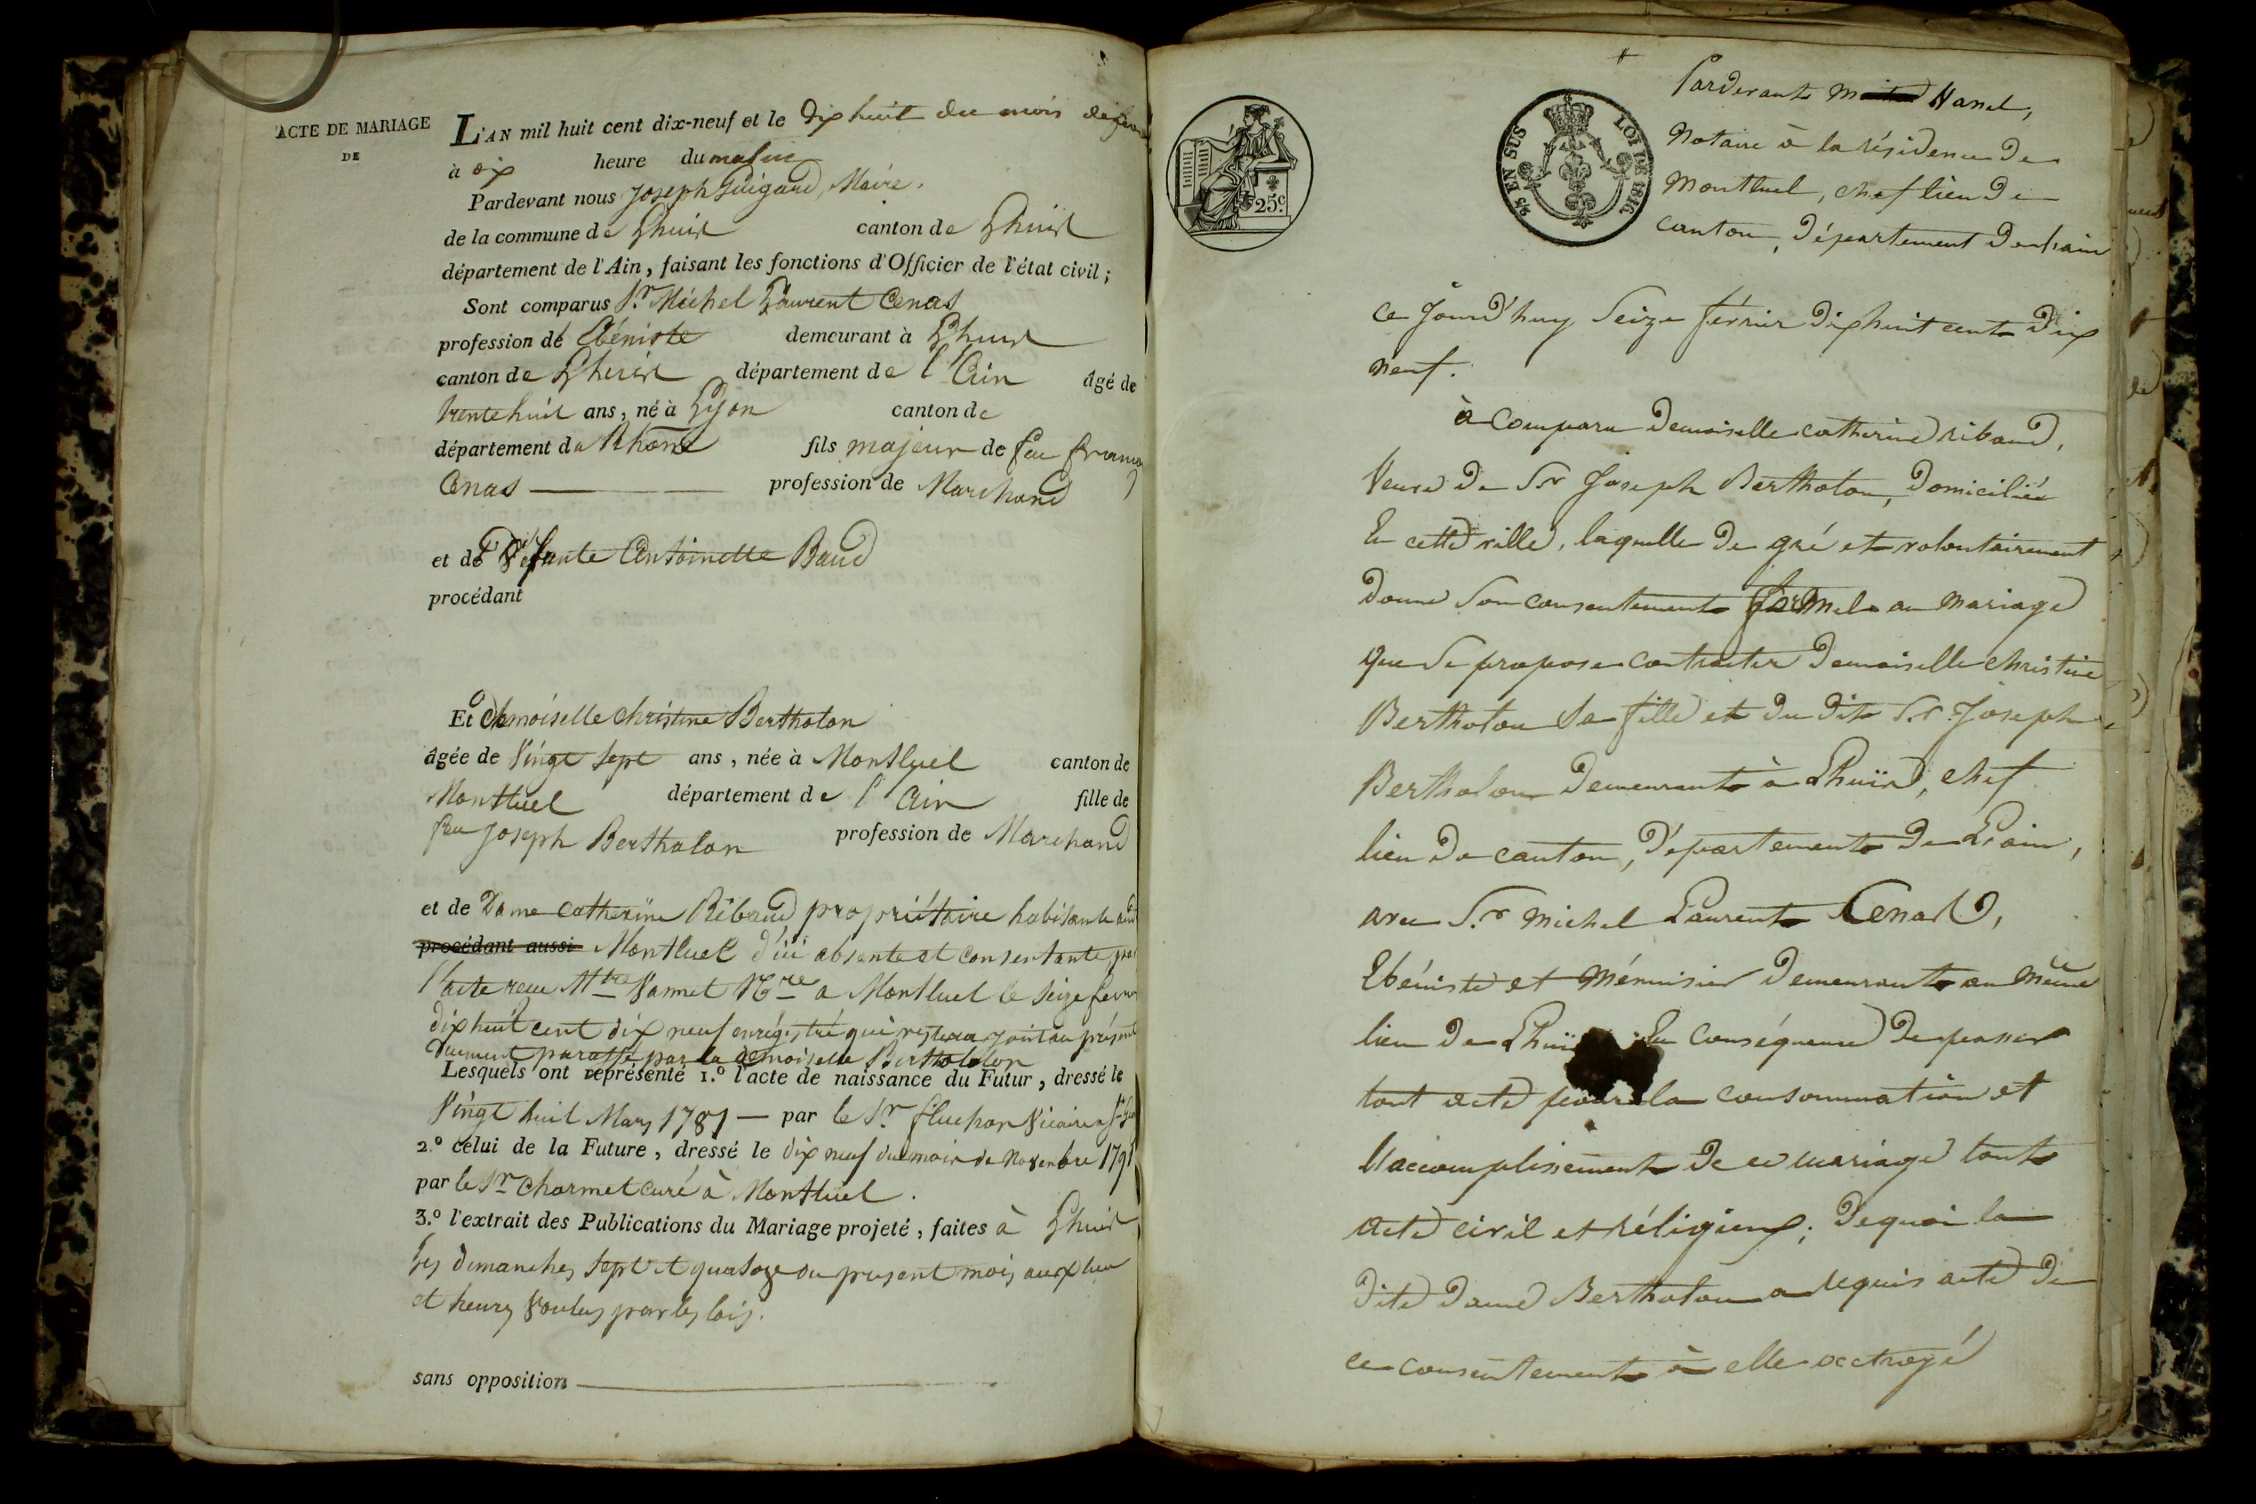 ACTE DE MARIAGE
DE
L'AN mil huit cent dix-neuf et le dix huit du mois de fevr
à dix heure du matin
Pardevant nous Joseph Guigard, Maire,
de la commune de Lhuis canton de Lhuis
département de l'Ain, faisant les fonctions d'Officier de l'état civil;
Sont comparus Sr. Michel Laurent Cenas
profession de Ebéniste demeurant à Lhuis
canton de Lhuis département de l'Ain âgé de
trente huit ans, né à Lyon canton de
département du Rhône fils majeur de feu
Cenas profession de Marchand
et de Défunte Antoinette Baud
procédant
Et Demoiselle Christine Bertholon
âgée de Vingt Sept ans, née à Montluel canton de
Montluel département de l'Ain fille de
feu Joseph Bertholon profession de Marchand
et de Dame Catherine Ribaud propriétaire habitante
procédant aussi Montluel d'ici absente et consentante par
l'acte reçu Mtre Vannet Nre a Montluel le Seize fevr
dix huit cent dix neuf enrégistré qui restera joint au présent
duement paraffé par la demoiselle Bertholon
Lesquels ont représenté 1.º l'acte de naissance du Futur, dressé le
Vingt huit Mars 1781 — par le Sr. fluchon Vicaire
2.º celui de la Future, dressé le dix neuf du mois de Novembre 1791
par le Sr Charmet curé à Montluel.
3.º l'extrait des Publications du Mariage projeté, faites à Lhuis
Les dimanches sept et quatoze du present mois aux lieu
et heures Voulus par les lois.
sans opposition
25 EN SUS
LOI DE 1816
25c
Pardevant Me Vanel,
Notaire à la résidence de
Montluel, chef lieu de
canton, Département de l'ain
Ce Jourd'huy Seize février dix huit cent dix
neuf.
à Comparu Demoiselle catherine ribaud,
Veuve de Sr Joseph Bertholon, Domiciliée
En cette ville, laquelle de gré et volontairement
donne Son consentement formel au Mariage
que Se propose contracter Demoiselle christine
Bertholon Sa fille et du dit Sr. Joseph
Bertholon Demeurante à Lhuis, chef
lieu de canton, Département de L'ain,
avec Sr. Michel Laurent Cenas,
Ebéniste et Ménuisier Demeurant au même
lieu de En conséquence de passer
tout acte pour la consommation et
l'accomplissement de ce mariage tout
acte civil et réligieux; De quoi la
Dite Dame Bertholon a requis acte de
ce consentement à elle octroyé